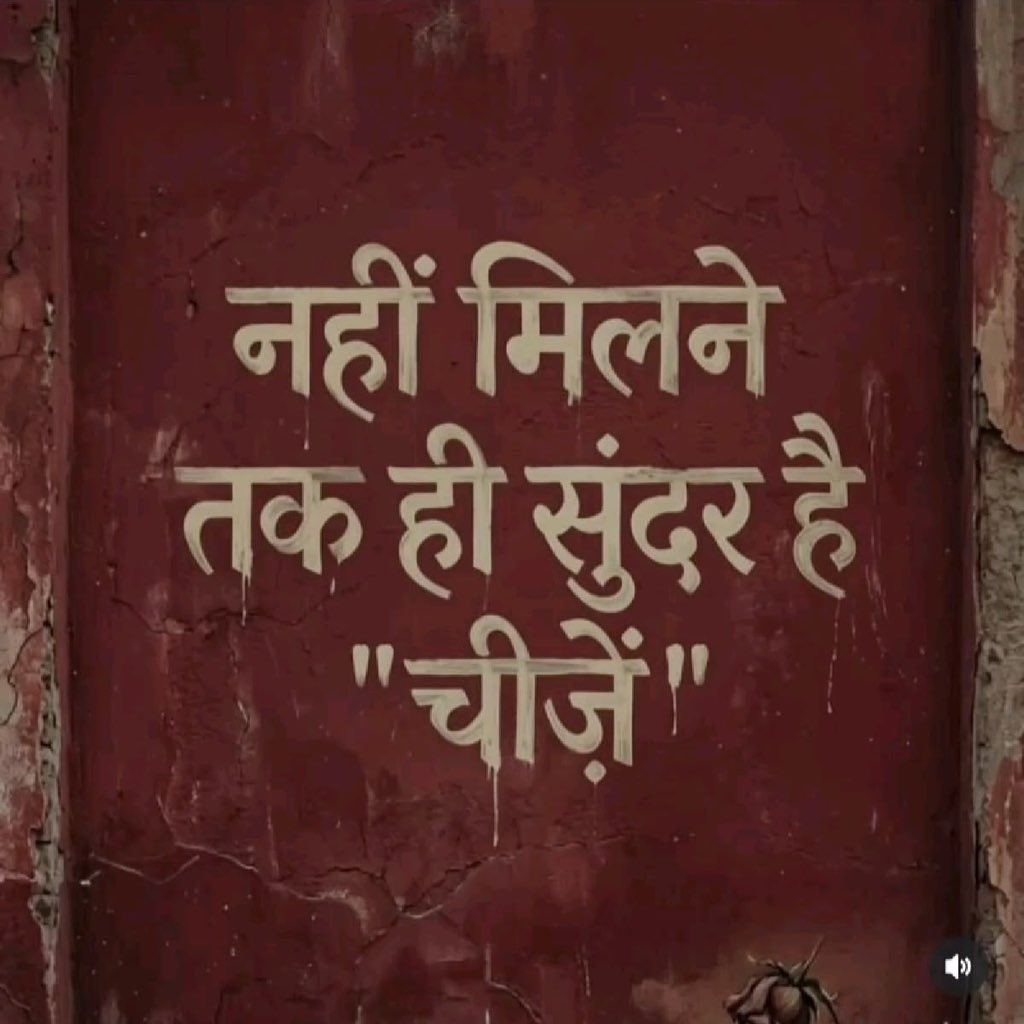 नहीं मिलने
तक ही सुंदर है
"चीज़ें"